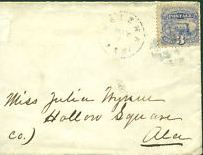 POSTAGE
3
Miss Julia Wynne
Hollow Square
Co.) Ala